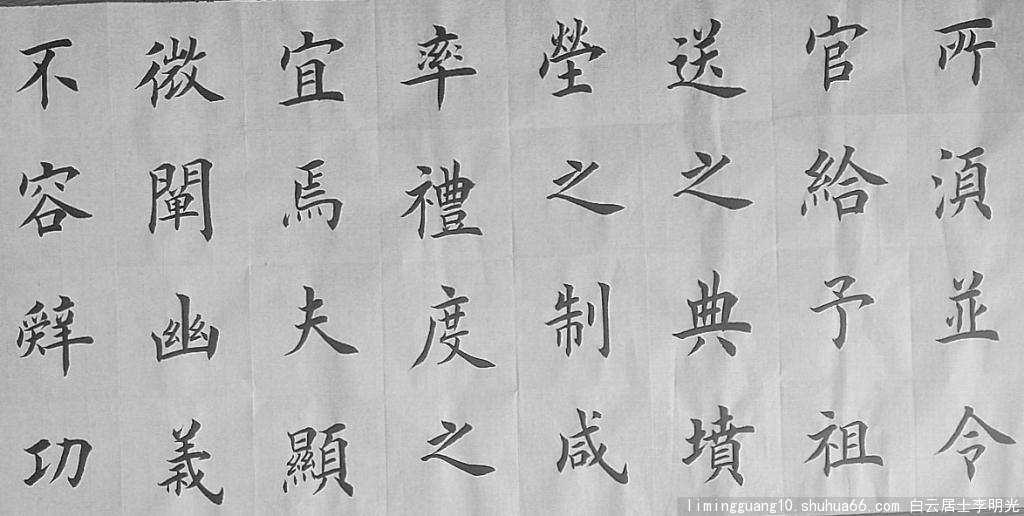 所須並令
官給予祖
送之典墳
塋之制咸
率禮度之
宜焉夫顯
微闡幽義
不容辭功
limingguang10.shuhua66.com 白云居士李明光